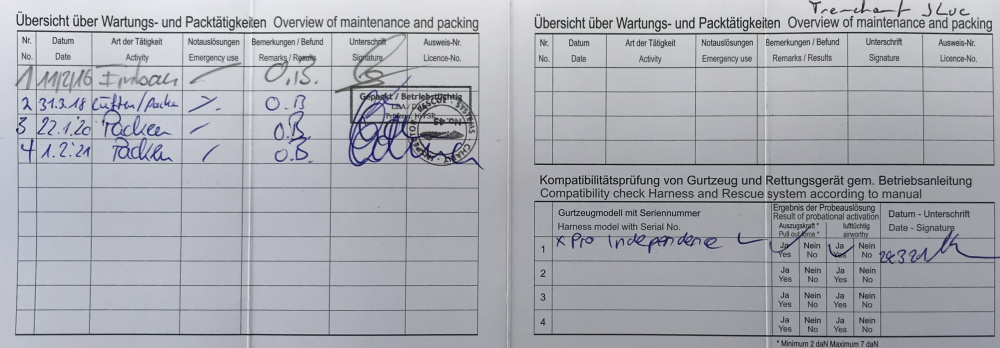 Übersicht über Wartungs- und Packtätigkeiten Overview of maintenance and packing
Nr. Datum Art der Tätigkeit Notauslösungen Bemerkungen / Befund Unterschrift Ausweis-Nr.
No. Date Activity Emergency use Remarks / Results Signature Licence-No.
1 11/2/16 Einbau / O.B.
2 31.3.18 Lüften/packen /. O.B
Gepackt / Betriebstüchtig
3 22.1.20 Packen / O.B.
4 1.2.21 Packen / O.B.
Übersicht über Wartungs- und Packtätigkeiten Overview of maintenance and packing
Nr. Datum Art der Tätigkeit Notauslösungen Bemerkungen / Befund Unterschrift Ausweis-Nr.
No. Date Activity Emergency use Remarks / Results Signature Licence-No.
Kompatibilitätsprüfung von Gurtzeug und Rettungsgerät gem. Betriebsanleitung
Compatibility check Harness and Rescue system according to manual
Gurtzeugmodell mit Seriennummer
Harness model with Serial No.
Ergebnis der Probeauslösung
Result of probational activation
Auszugskraft * lufttüchtig
Pull out force * airworthy
Datum - Unterschrift
Date - Signature
1 X Pro Independence L Ja Nein Ja Nein
Yes No Yes No
2 Ja Nein Ja Nein
Yes No Yes No
3 Ja Nein Ja Nein
Yes No Yes No
4 Ja Nein Ja Nein
Yes No Yes No
* Minimum 2 daN Maximum 7 daN